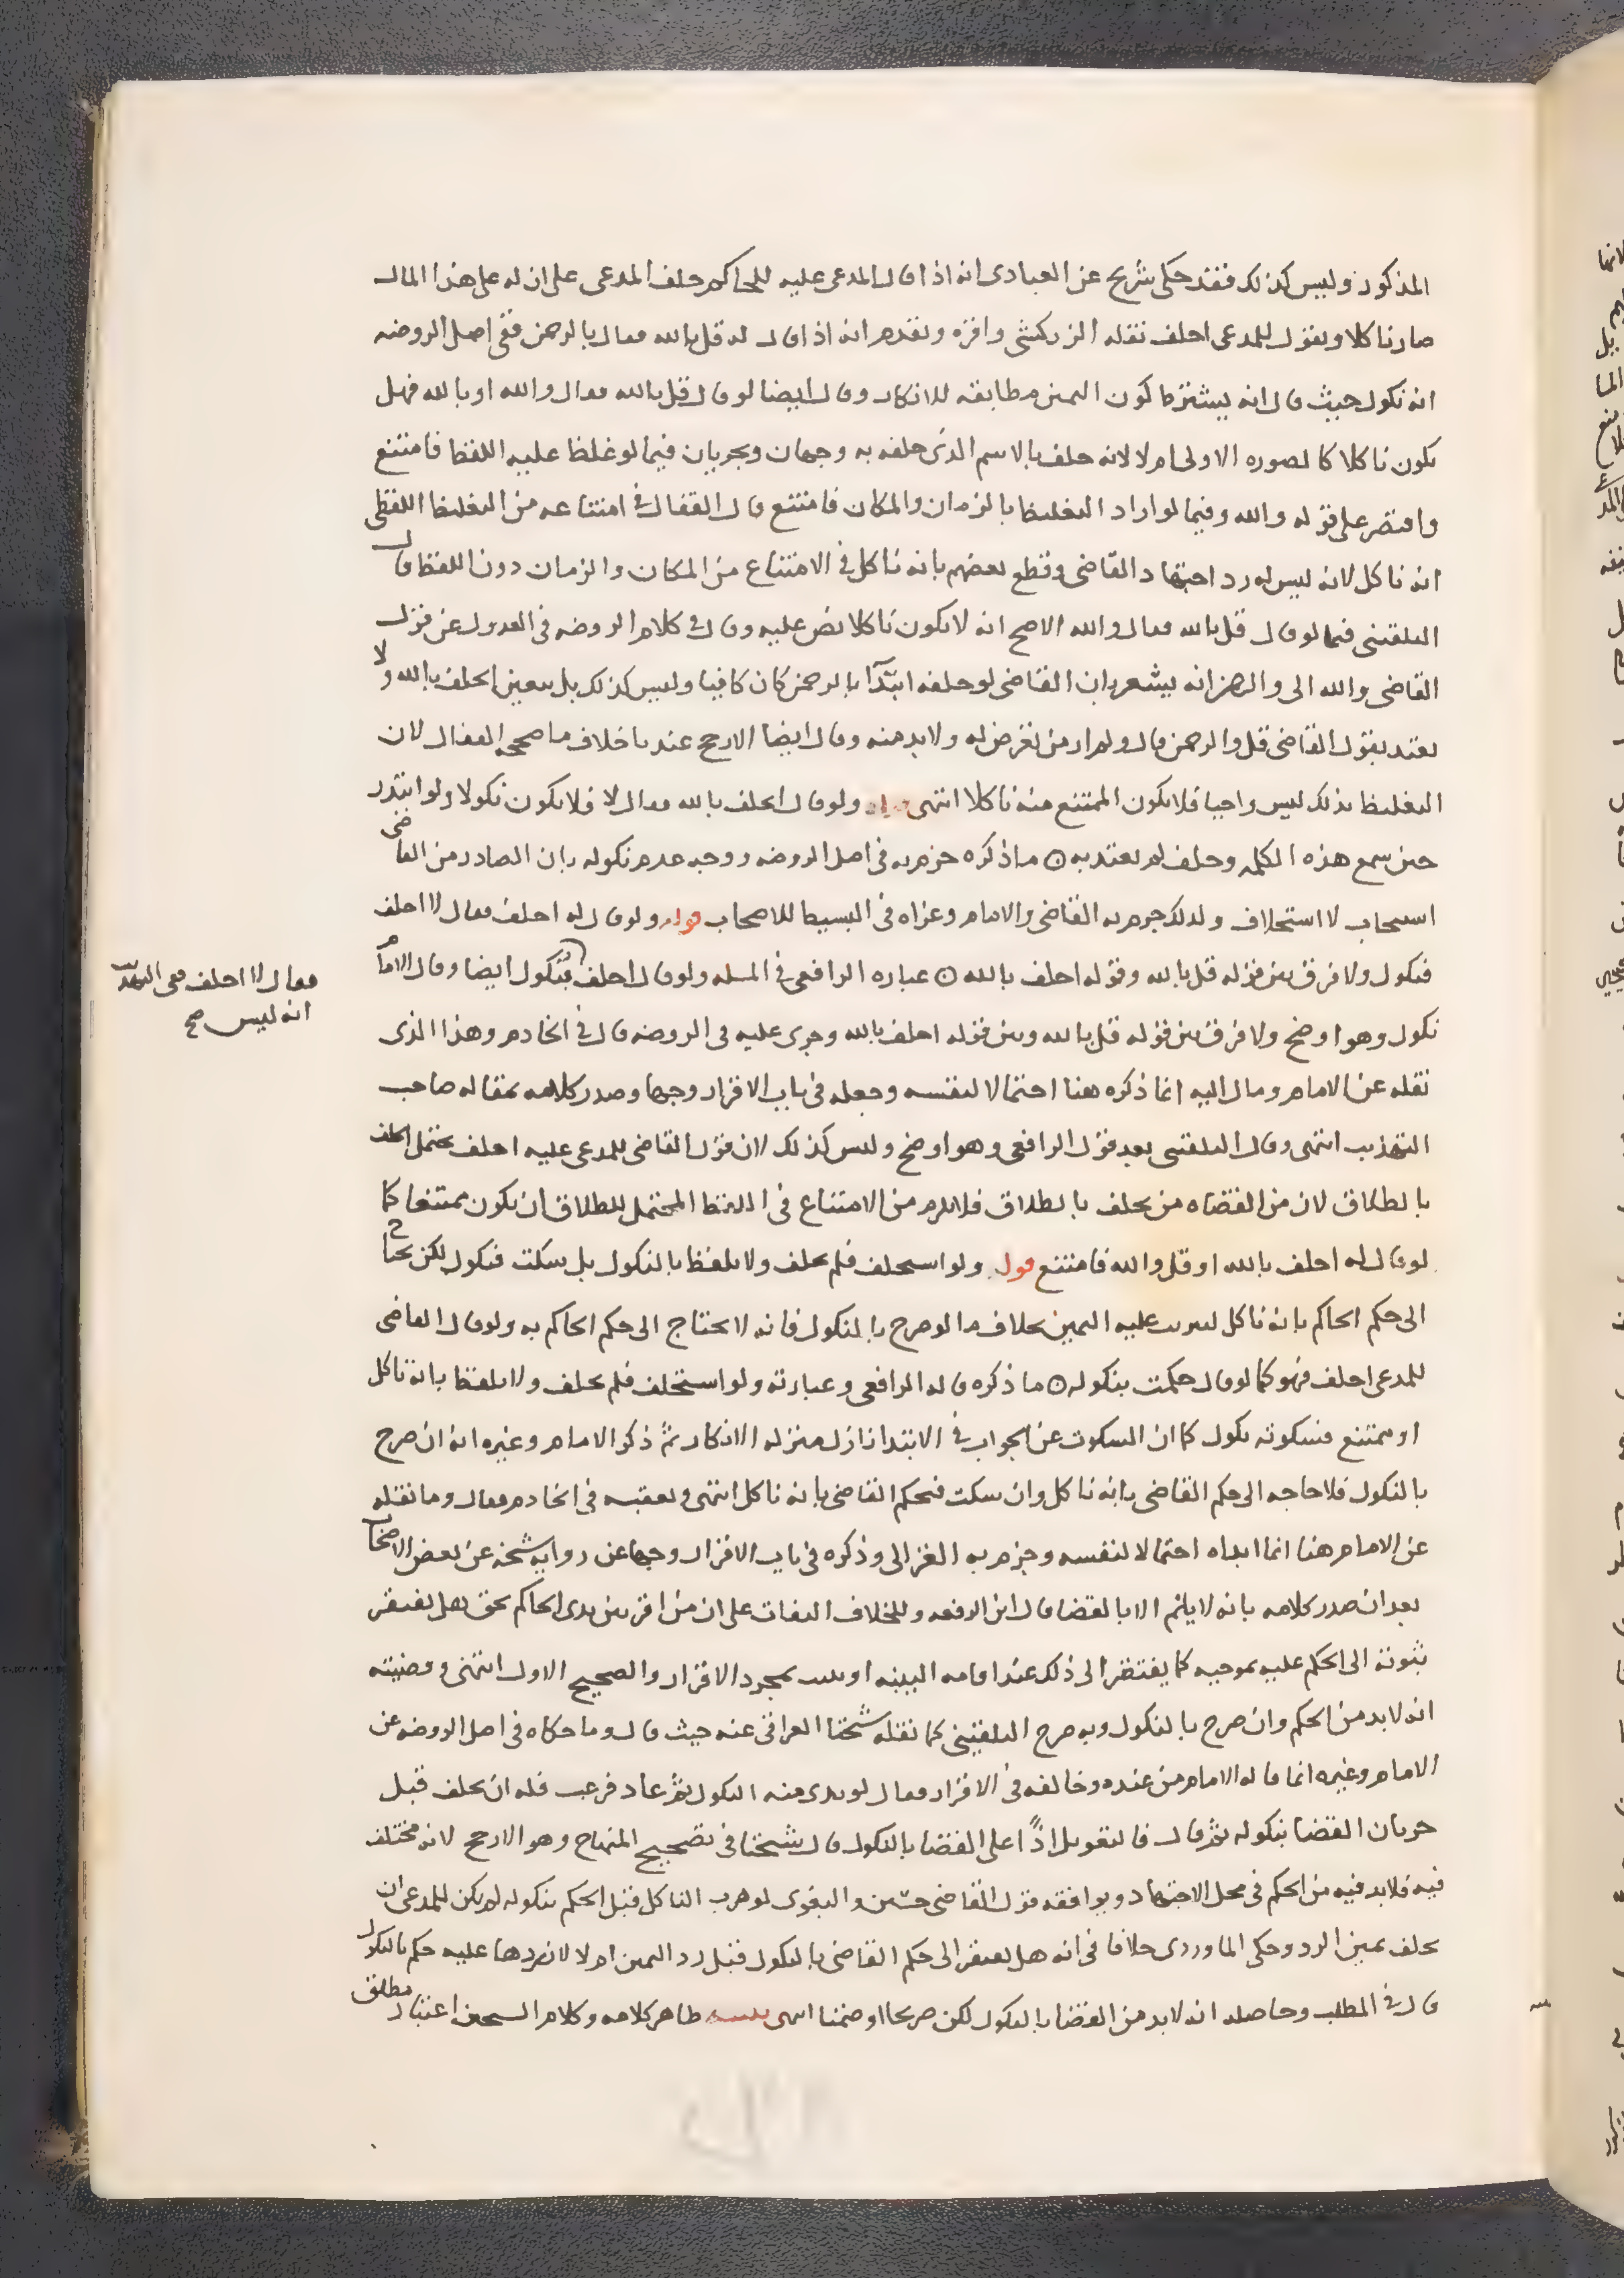 المذكور وليس كذلك فقد حكى شريح عن العبادى انه اذا قال المدعى عليه للحاكم حلف المدعى على ان له على هذا المال
صار ناكلا ويقول للمدعى احلف نقله الزركشى واقره وتقدم انه اذا قال له قل بالله فقال بالرحمن ففى اصل الروضه
انه نكول حيث قال انه يشترط كون اليمين مطابقه للانكار وقال ايضا لو قال قل بالله فقال والله او بالله فهل
يكون ناكلا كالصوره الاولى ام لا لانه حلف بالاسم الذى حلفه به وجهان ويجريان فيما لو غلظ عليه اللفظ فامتنع
واقتصر على قوله والله وفيما لو اراد التغليظ بالزمان والمكان فامتنع قال القفال فى امتناعه من التغليظ اللفظى
انه ناكل لانه ليس له رد اجتهاد القاضى وقطع بعضهم بانه ناكل فى الامتناع من المكان والزمان دون اللفظ قال
البلقينى فيما لو قال قل بالله فقال والله الاصح انه لا يكون ناكلا نص عليه وقال فى كلام الروضه فى العدول عن قول
القاضى والله الى والرحمن انه يشعر بان القاضى لو حلفه ابتدآ بالرحمن كان كافيا وليس كذلك بل يتعين الحلف بالله ولا
يعتد بقول القاضى قل والرحمن قال ولم ار من تعرض له ولا بد منه وقال ايضا الارجح عندنا خلاف ما صححه القفال لان
التغليظ بذلك ليس واجبا فلا يكون الممتنع منه ناكلا انتهى قوله ولو قال احلف بالله فقال لا فلا يكون نكولا ولو ابتدر
حين سمع هذه الكلمه وحلف لم يعتد به ۝ ما ذكره جزم به فى اصل الروضه ووجه عدم نكوله بان الصادر من القاضى
استحباب لا استحلاف ولذلك جزم به القاضى والامام وعزاه فى البسيط للاصحاب قوله ولو قال له احلف فقال لا احلف
فنكول ولا فرق بين قوله قل بالله وقوله احلف بالله ۝ عباره الرافعى فى المسله ولو قال احلف فنكول ايضا وقال الامام
فقال لا احلف ففى التهذيب
انه ليس صح
نكول وهو اوضح ولا فرق بين قوله قل بالله وبين قوله احلف بالله وجرى عليه فى الروضه قال فى الخادم وهذا الذى
نقله عن الامام ومال اليه انما ذكره هنا احتمالا لنفسه وجعله فى باب الاقرار وجها وصدر كلامه بمقاله صاحب
التهذيب انتهى وقال البلقينى بعد قول الرافعى وهو اوضح وليس كذلك لان قول القاضى للمدعى عليه احلف يحتمل الحلف
بالطلاق لان من القضاه من يحلف بالطلاق فلا يلزم من الامتناع فى اللفظ المحتمل للطلاق ان يكون ممتنعا كما
لو قال له احلف بالله او قل والله فامتنع قوله ولو استحلف فلم يحلف ولا تلفظ بالنكول بل سكت فنكول لكن يحتاج
الى حكم الحاكم بانه ناكل ليرتب عليه اليمين بخلاف ما لو صرح بالنكول فانه لا يحتاج الى حكم الحاكم به ولو قال القاضى
للمدعى احلف فهو كما لو قال حكمت بنكوله ۝ ما ذكره قاله الرافعى وعبارته ولو استحلف فلم يحلف ولا تلفظ بانه ناكل
او ممتنع فسكوته نكول كما ان السكوت عن الجواب فى الابتدا نازل منزله الانكار ثم ذكر الامام وغيره انه ان صرح
بالنكول فلا حاجه الى حكم القاضى بانه ناكل وان سكت فيحكم القاضى بانه ناكل انتهى وتعقبه فى الخادم فقال وما نقله
عن الامام هنا انما ابداه احتمالا لنفسه وجزم به الغزالى وذكره فى باب الاقرار وجها عن روايه شيخه عن بعض الاصحاب
بعد ان صدر كلامه بانه لا يلزم الا بالقضا قال ابن الرفعه وللخلاف التفات على ان من اقر بين يدى الحاكم بحق هل يفتقر
ثبوته الى الحكم عليه بموجبه كما يفتقر الى ذلك عند اقامه البينه او يثبت بمجرد الاقرار والصحيح الاول انتهى وقضيته
انه لا بد من الحكم وان صرح بالنكول وبه صرح البلقينى كما نقله شيخنا العراقى عنه حيث قال وما حكاه فى اصل الروضه عن
الامام وغيره انما قاله الامام من عنده وخالفه فى الاقرار فقال لو بدى منه النكول ثم عاد فرغب فله ان يحلف قبل
جريان القضا بنكوله ثم قال فالتعويل اذًا على القضا بالنكول قال شيخنا فى تصحيح المنهاج وهو الارجح لانه مختلف
فيه فلا بد فيه من الحكم فى محل الاجتهاد ويوافقه قول القاضى حسين والبغوى لو هرب الناكل قبل الحكم بنكوله لم يكن للمدعى ان
يحلف يمين الرد وحكى الماوردى خلافا فى انه هل يفتقر الى حكم القاضى بالنكول قبل رد اليمين ام لا لان ردها عليه حكم بالنكول
قال فى المطلب وحاصله انه لا بد من القضا بالنكول لكن صريحا او ضمنا انتهى تنبيه ظاهر كلامه وكلام الشيخين اعتبار مطلق